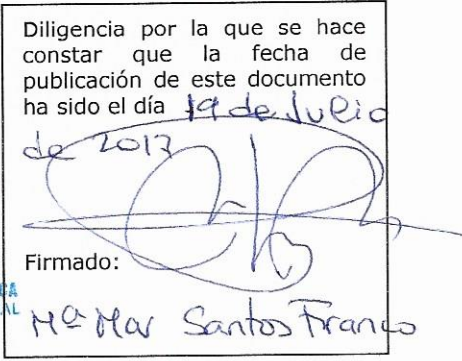 Diligencia por la que se hace
constar que la fecha de
publicación de este documento
ha sido el día 19 de Julio
de 2017
Firmado:
Mª Mar Santos Franco